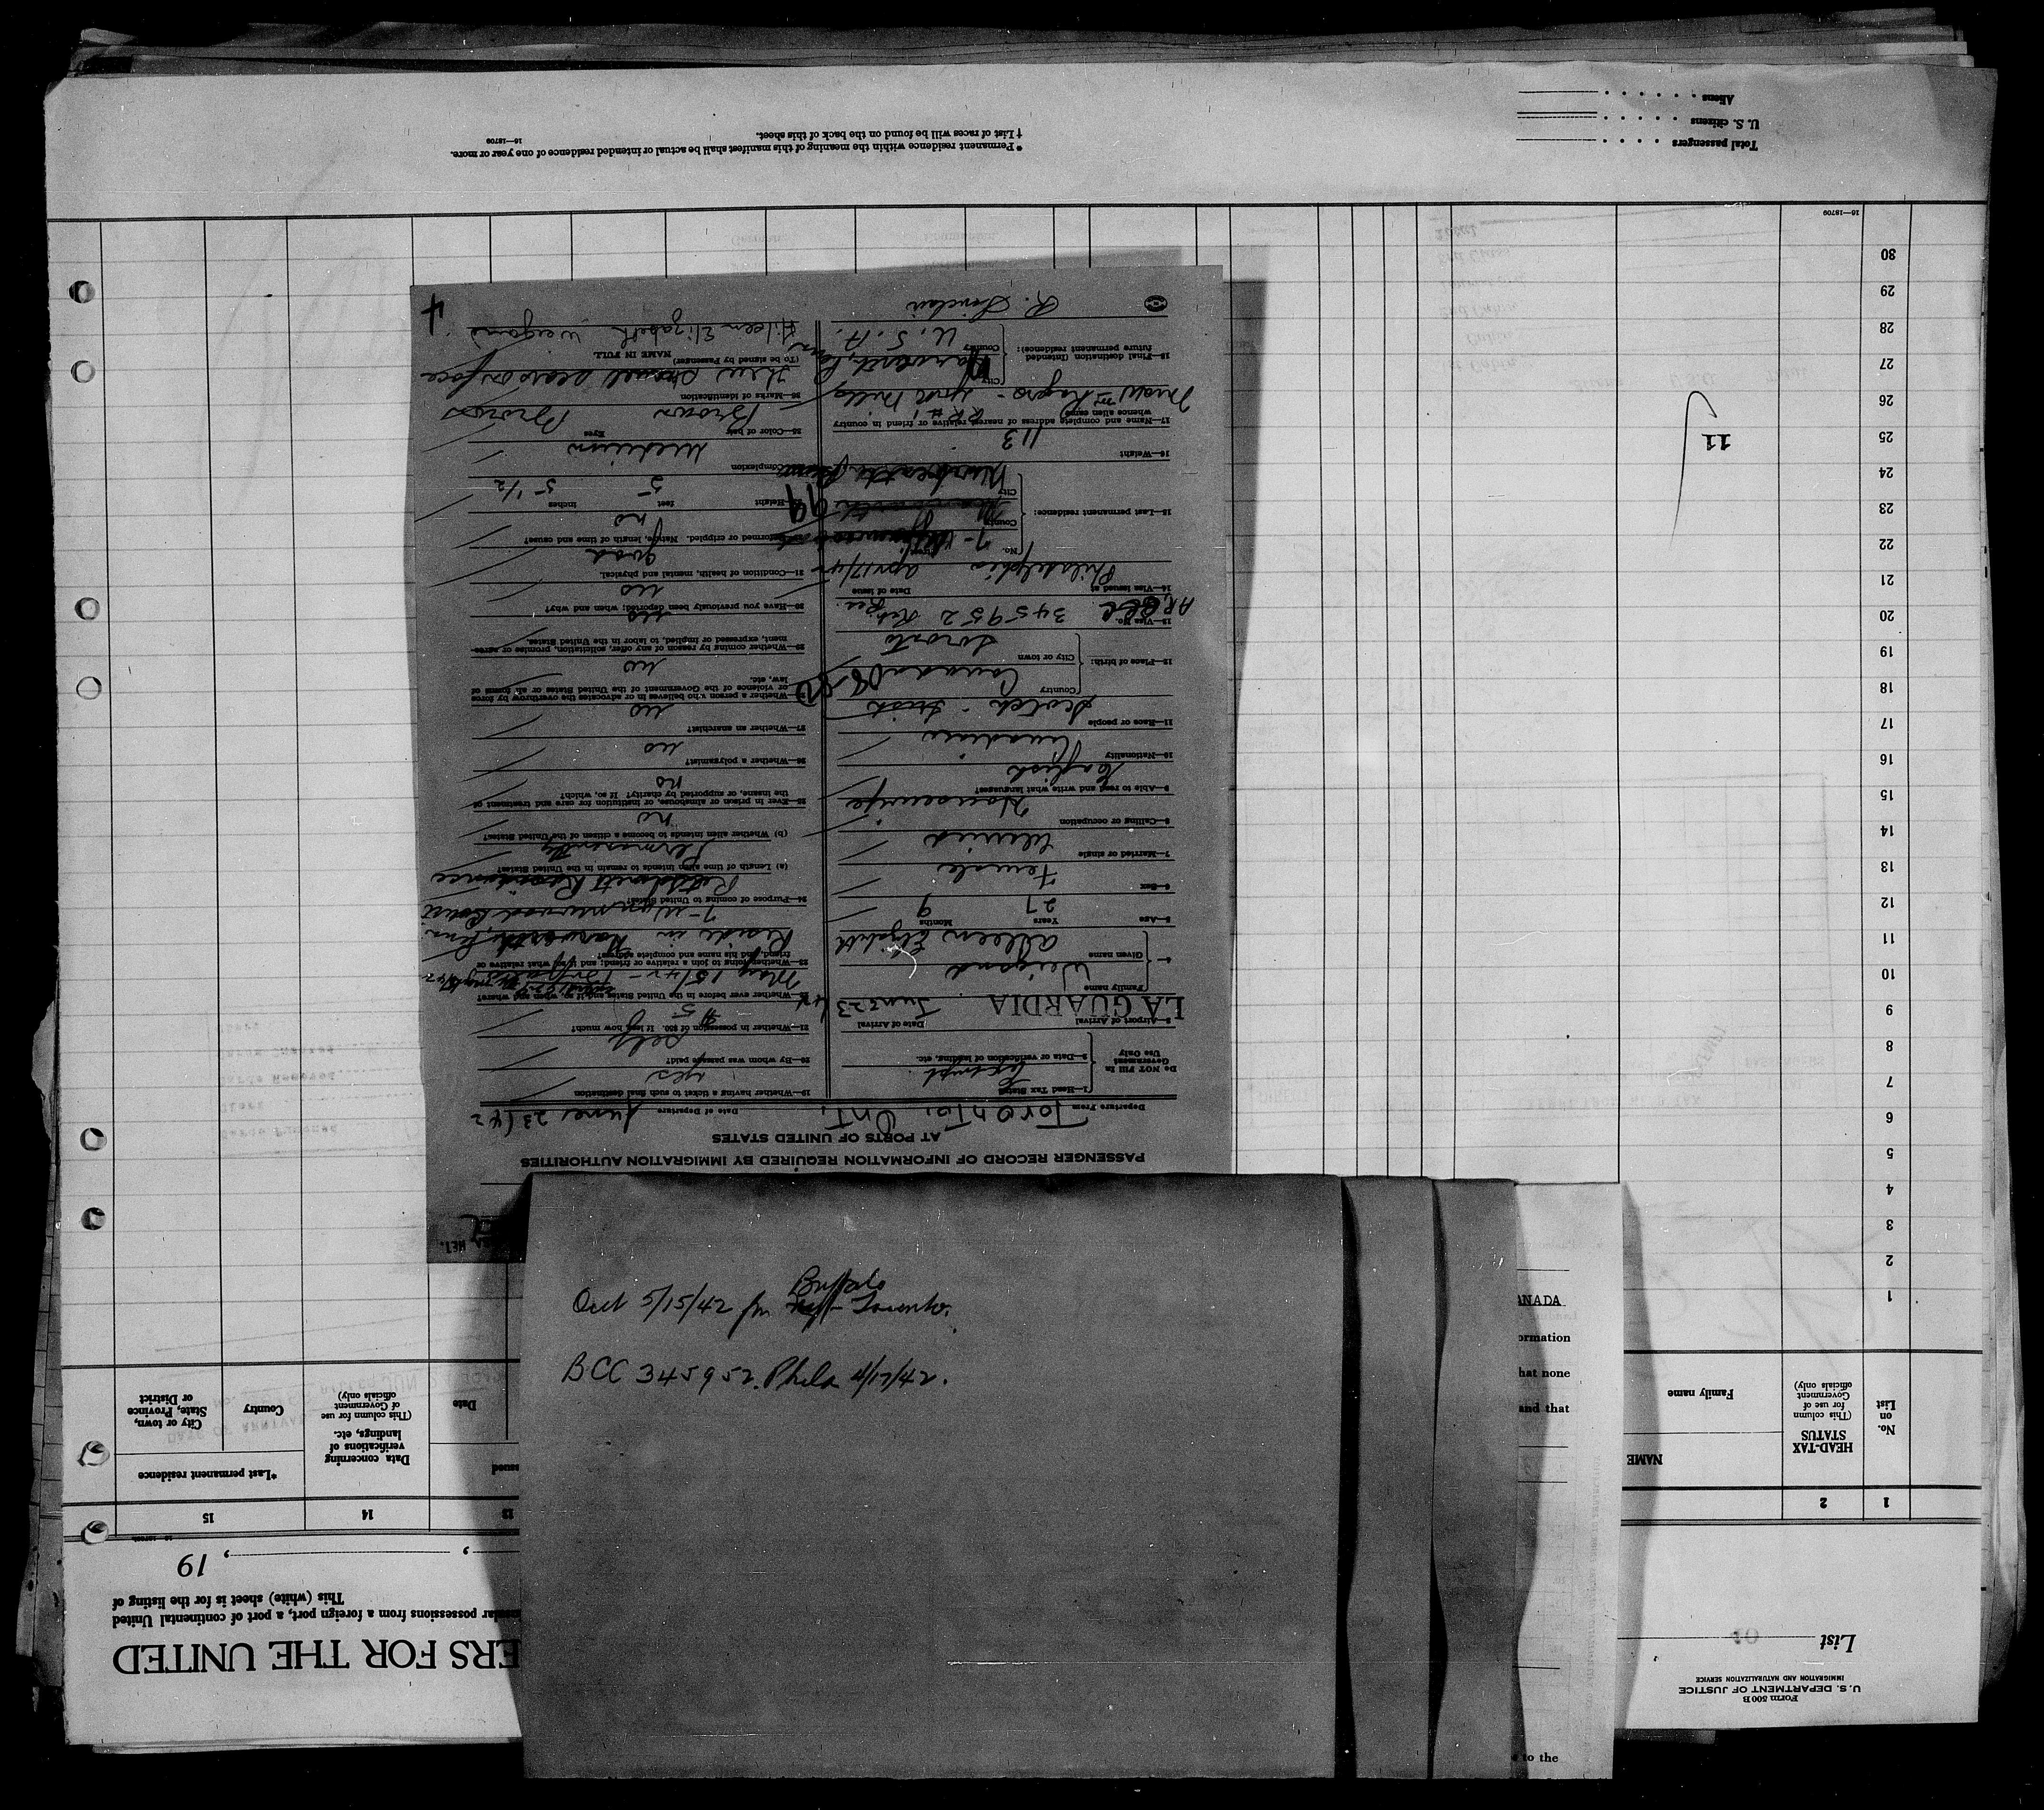 Form 500 B
U. S. DEPARTMENT OF JUSTICE
IMMIGRATION AND NATURALIZATION SERVICE
List 10
ERS FOR THE UNITED
nsular possessions from a foreign port, a port of continental United
This (white) sheet is for the listing of
, 19
1
2
13
14
15
No. on List
HEAD-TAX STATUS
(This column for use of Government officials only)
NAME
Family name
issued
Date
Data concerning verifications of landings, etc.
(This column for use of Government officials only)
*Last permanent residence
Country
City or town, State, Province or District
1
2
3
4
5
6
7
8
9
10
11
12
13
14
15
16
17
18
19
20
21
22
23
24
25
26
27
28
29
30
11
16—18709
Total passengers
U. S. citizens
Aliens
*Permanent residence within the meaning of this manifest shall be actual or intended residence of one year or more.
† List of races will be found on the back of this sheet.
16—18709
PASSENGER RECORD OF INFORMATION REQUIRED BY IMMIGRATION AUTHORITIES
AT PORTS OF UNITED STATES
Departure From Toronto, Ont. Date of Departure June 23/42
Do NOT Fill In Government Use Only
1—Head Tax Status Exempt
2—Data or verification of landing, etc.
3—Airport of Arrival LA GUARDIA Date of Arrival June 23/42
4— Family name Weigand
Given name Aileen Elizabeth
5—Age Years 27 Months 9
6—Sex Female
7—Married or single
8—Calling or occupation Housewife
9—Able to read and write what languages? English
10—Nationality Canadian
11—Race or people Scotch-Irish
12—Place of birth: Country Canada
City or town Toronto
13—Visa No. 345952
14—Visa issued at Philadelphia Date of issue Apr 17/42
15—Last permanent residence: No. 7
Country
City
16—Weight 113
17—Name and complete address of nearest relative or friend in country whence alien came
Rogers - York Mills RR #1
18—Final destination (Intended future permanent residence): City Narberth, Penn
Country U. S. A.
R. Sinclair
19—Whether having a ticket to such final destination yes
20—By whom was passage paid? Self
21—Whether in possession of $50. If less how much? $5
22—Whether ever before in the United States and if so, when and where?
May 15/42 - Buffalo
23—Whether going to join a relative or friend; and if so, what relative or friend, and his name and complete address?
Reside in Narberth, Penn.
7-Wynnewood Road
24—Purpose of coming to United States?
Residence
(a) Length of time alien intends to remain in the United States?
Permanently
(b) Whether alien intends to become a citizen of the United States?
no
25—Ever in prison or almshouse, or institution for care and treatment of the insane, or supported by charity? If so, which?
no
26—Whether a polygamist?
no
27—Whether an anarchist?
no
28—Whether a person who believes in or advocates the overthrow by force or violence of the Government of the United States or all forms of law, etc.
no
29—Whether coming by reason of any offer, solicitation, promise or agreement, expressed or implied, to labor in the United States.
30—Have you previously been deported; when and why?
no
31—Condition of health, mental and physical.
good
Deformed or crippled. Nature, length of time and cause?
no
Height 5 feet 5 1/2 inches
Complexion Medium
35—Color of: Hair Brown Eyes Brown
36—Marks of identification
few small scars on face
(To be signed by Passenger) NAME IN FULL
Aileen Elizabeth Weigand
4
Out 5/15/42 fm Buffalo - Toronto.
BCC 345952. Phila 4/17/42.
ANADA
ormation
hat none
and that
to the